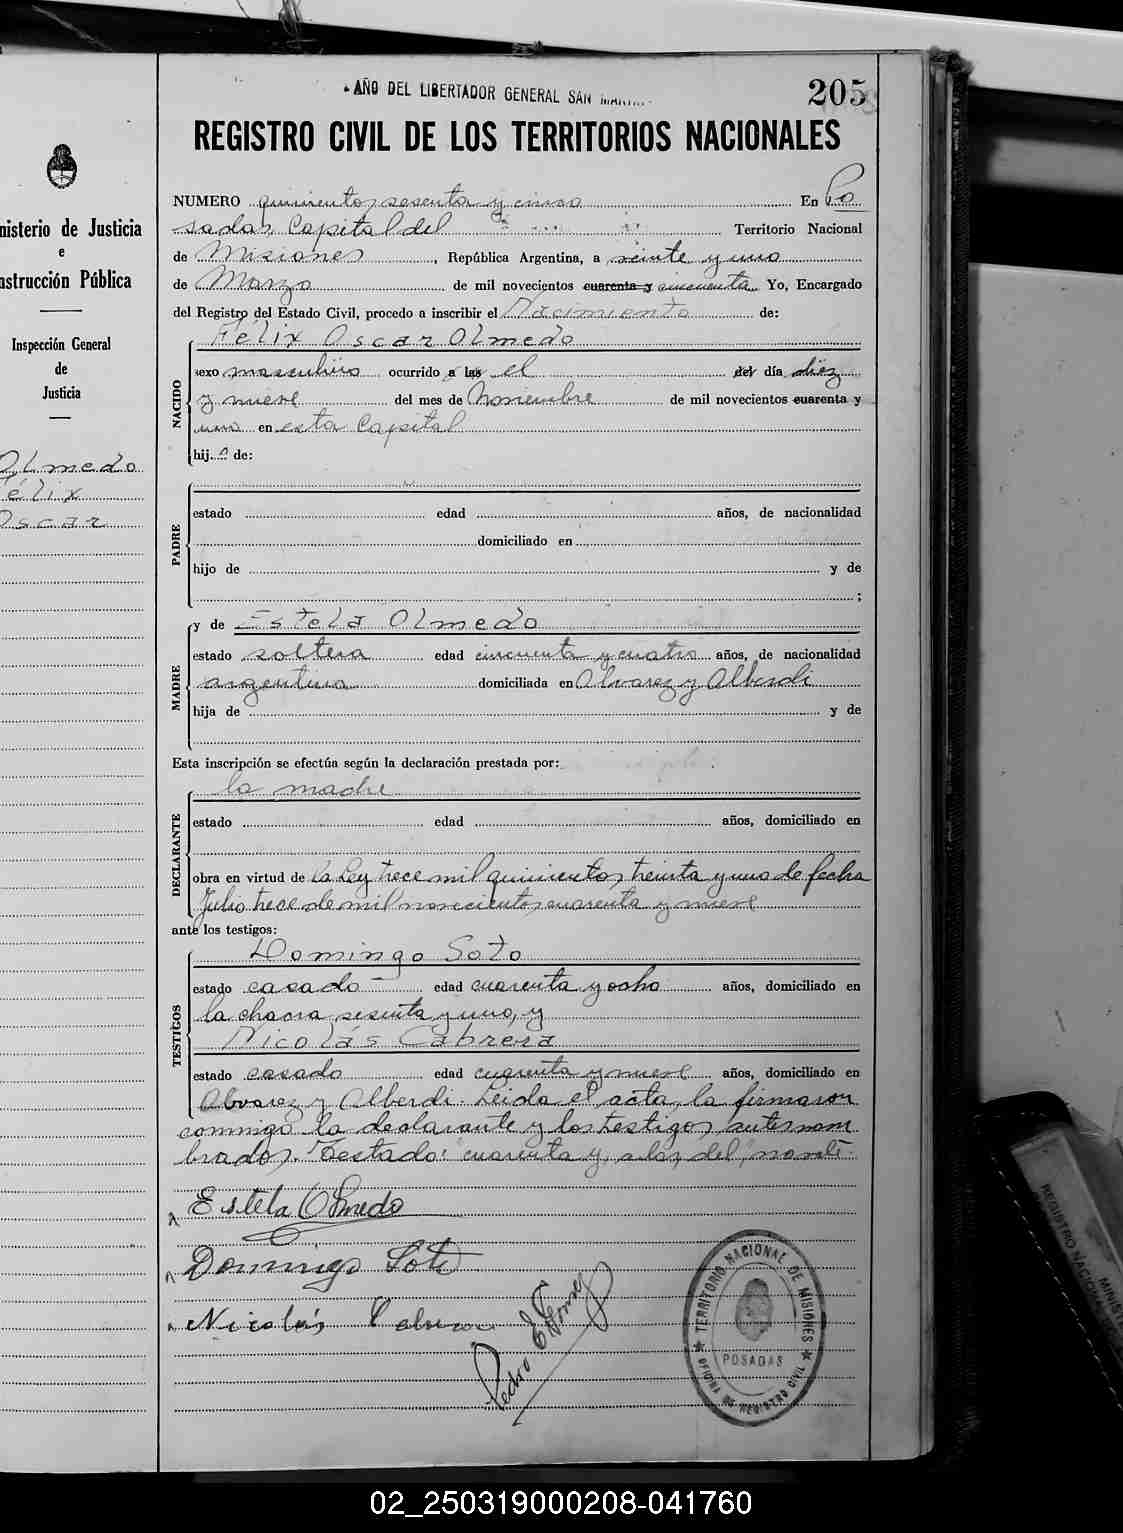 AÑO DEL LIBERTADOR GENERAL SAN
205
REGISTRO CIVIL DE LOS TERRITORIOS NACIONALES
nisterio de Justicia
e
nstrucción Pública
Inspección General
de
Justicia
Olmedo
Félix
Oscar
NUMERO quinientos sesenta y cinco En Po
sadas Capital del Territorio Nacional
de Misiones, República Argentina, a veinte y uno
de Marzo de mil novecientos cuarenta y cincuenta Yo, Encargado
del Registro del Estado Civil, procedo a inscribir el Nacimiento de:
NACIDO
Félix Oscar Olmedo
sexo masculino ocurrido a las el del día diez
y nueve del mes de Noviembre de mil novecientos cuarenta y
uno en esta Capital
hij.o de:
PADRE
estado edad años, de nacionalidad
domiciliado en
hijo de y de
;
MADRE
y de Estela Olmedo
estado soltera edad cincuenta y cuatro años, de nacionalidad
argentina domiciliada en Alvarez y Alberdi
hija de y de
Esta inscripción se efectúa según la declaración prestada por:
DECLARANTE
la madre
estado edad años, domiciliado en
obra en virtud de la Ley trece mil quinientos treinta y uno de fecha
Julio trece de mil novecientos cuarenta y nueve
ante los testigos:
TESTIGOS
Domingo Soto
estado casado edad cuarenta y ocho años, domiciliado en
la chacra sesenta y uno, y
Nicolás Cabrera
estado casado edad cuarenta y nueve años, domiciliado en
Alvarez y Alberdi. Leida el acta, la firmaron
conmigo la declarante y los testigos antenom
brados. Testado: cuarenta y, a las, del,
Estela Olmedo
Domingo Soto
Nicolás Cabrera
Pedro E Gomez
TERRITORIO NACIONAL DE MISIONES
POSADAS
OFICINA DE REGISTRO CIVIL
REGISTRO
NACIONAL
MINIST
02_250319000208-041760